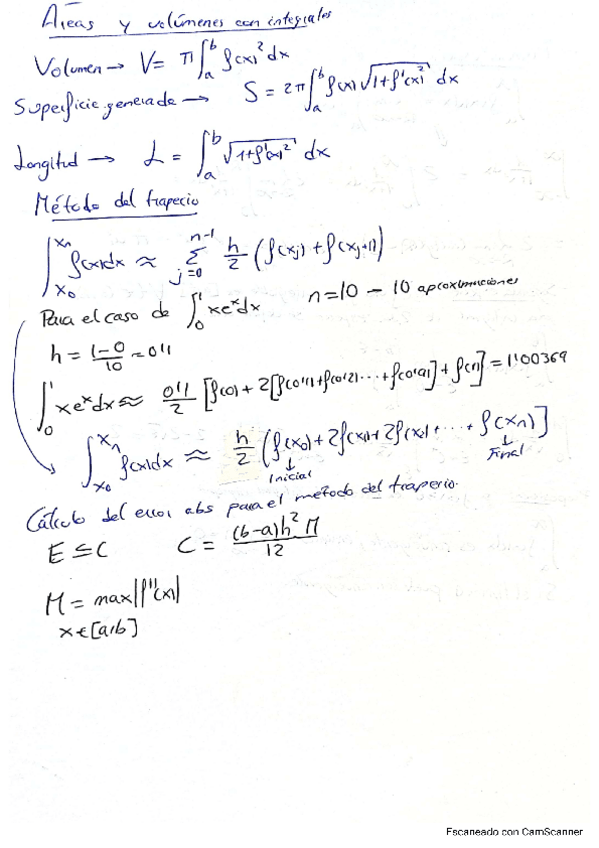 Áreas y volúmenes con integrales
Volumen → V = π∫_a^b f(x)² dx
Superficie generada → S = 2π∫_a^b f(x) √(1+f'(x)²) dx
Longitud → L = ∫_a^b √(1+f'(x)²) dx
Método del trapecio
∫_{x₀}^{xₙ} f(x)dx ≈ Σ_{j=0}^{n-1} h/2 (f(xj) + f(xj+1))
Para el caso de ∫_0^1 xe^x dx n=10 – 10 aproximaciones
h = (1-0)/10 = 0'1
∫_0^1 xe^x dx ≈ 0'1/2 [f(0) + 2[f(0'1)+f(0'2)...+f(0'9)] + f(1)] = 1'00369
∫_{x₀}^{xₙ} f(x)dx ≈ h/2 (f(x₀) + 2f(x₁)+2f(x₂)+...+f(xₙ)]
↓ Inicial ↓ Final
Cálculo del error abs para el método del traperio.
E ≤ C C = (b-a)h² M / 12
M = max|f''(x)|
x ∈ [a,b]
Escaneado con CamScanner